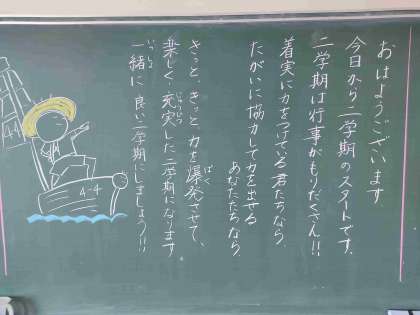 おはようございます
今日から二学期のスタートです。
二学期は行事がもりだくさん!!
着実に力をつけている君たちなら
たがいに協力して力を出せる
あなたたちなら、
きっと、きっと、力を爆発させて、
ばく
楽しく、充実した二学期になります。
じゅうじつ
一緒に良い二学期にしましょう!!
いっしょ
4-4